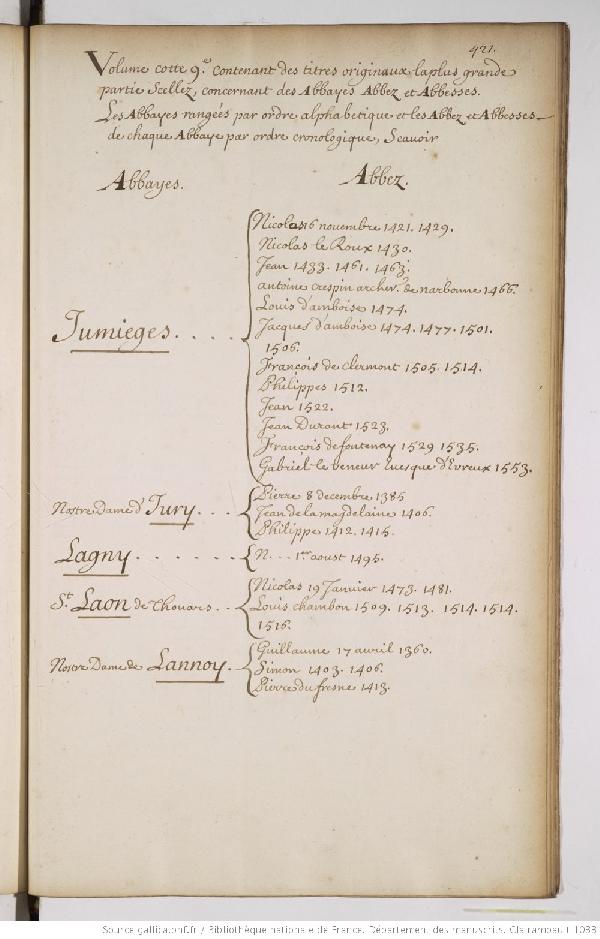 421.
Volume cotte 9.e contenant des titres originaux la plus grande
partie Scellez, concernant des Abbayes Abbez et Abbesses.
Les Abbayes rangées par ordre alphabetique et les Abbez et Abbesses
de chaque Abbaye par ordre cronologique, Scavoir
Abbayes. Abbez.
Jumieges. . . . .
Nicolas 16 novembre 1421. 1429.
Nicolas le Roux 1430.
Jean 1433. 1461. 1463.
antoine crespin archev.e de narbonne 1466.
Louis d'amboise 1474.
Jacques d'amboise 1474. 1477. 1501.
1506.
François de clermont 1505. 1514.
Philippes 1512.
Jean 1522.
Jean Durant 1523.
François de fontenay 1529 1535.
Gabriel le veneur Evesque d'Evreux 1553.
Nostre Dame d'Jury. . . .
Pierre 8 decembre 1385
Jean de la magdelaine 1406.
Philippe 1412. 1415.
Lagny . . . . . . . N. . . . 1.er aoust 1495.
St. Laon de Thouars. . .
Nicolas 19 Janvier 1473. 1481.
Louis chambon 1509. 1513. 1514. 1514.
1516.
Nostre Dame de Lannoy.
Guillaume 17 avril 1360.
Simon 1403. 1406.
Pierre du fresne 1413.
Source gallica.bnf.fr / Bibliothèque nationale de France. Département des manuscrits. Clairambault 1083